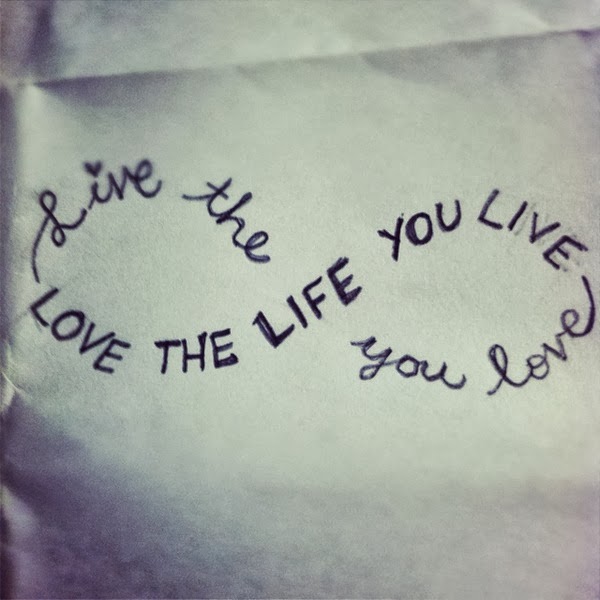 Live the
LOVE THE LIFE YOU LIVE
you love